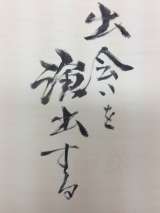 出会いを
演出する